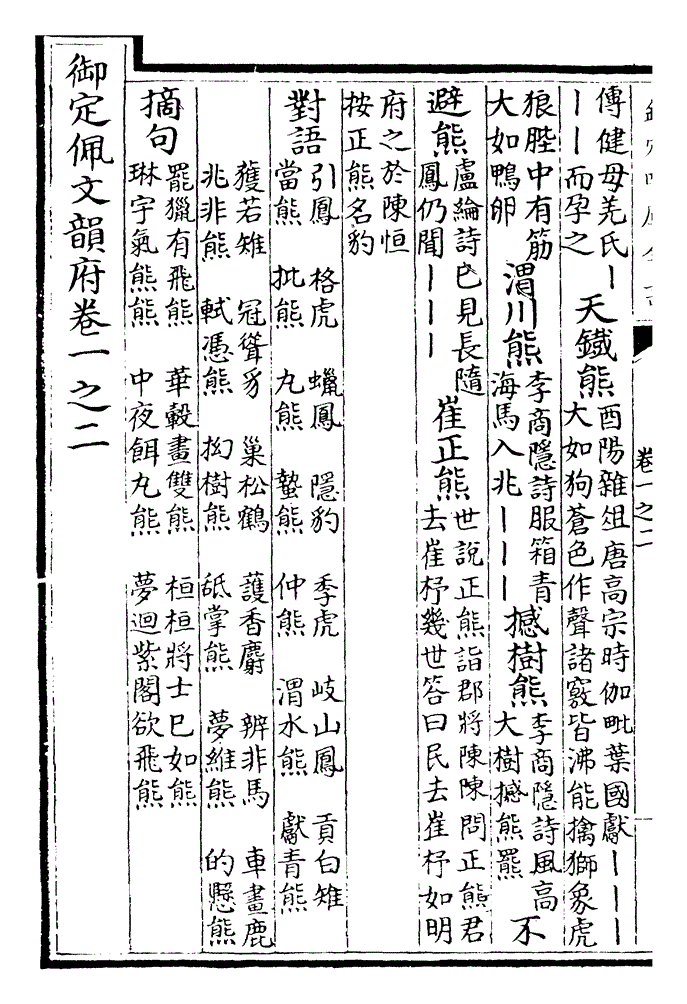 卷一之二
傳健母羌氏丨
丨丨而孕之
天鐵熊
酉陽雜俎唐高宗時伽毗葉國獻丨丨丨
大如狗蒼色作聲諸竅皆沸能擒獅象虎
狼䏶中有筋
大如鴨卵
渭川熊
李商隱詩服箱青
海馬入兆丨丨丨
撼樹熊
李商隱詩風高
大樹撼熊羆
不
避熊
盧綸詩已見長隨
鳳仍聞丨丨丨
崔正熊
世說正熊詣郡將陳陳問正熊君
去崔杼幾世答曰民去崔杼如明
府之於陳恒
按正熊名豹
對語
引鳳 格虎 蠟鳳 隱豹 季虎 岐山鳳 貢白雉
當熊 批熊 丸熊 蟄熊 仲熊 渭水熊 獻青熊
獲若雉 冠聳豸 巢松鶴 護香麝 辨非馬 車畫鹿
兆非熊 軾憑熊 拗樹熊 舐掌熊 夢維熊 的懸熊
摘句
罷獵有飛熊 華轂畫雙熊 桓桓將士巳如熊
琳宇氣熊熊 中夜餌丸熊 夢迴紫閣欲飛熊
御定佩文韻府卷一之二